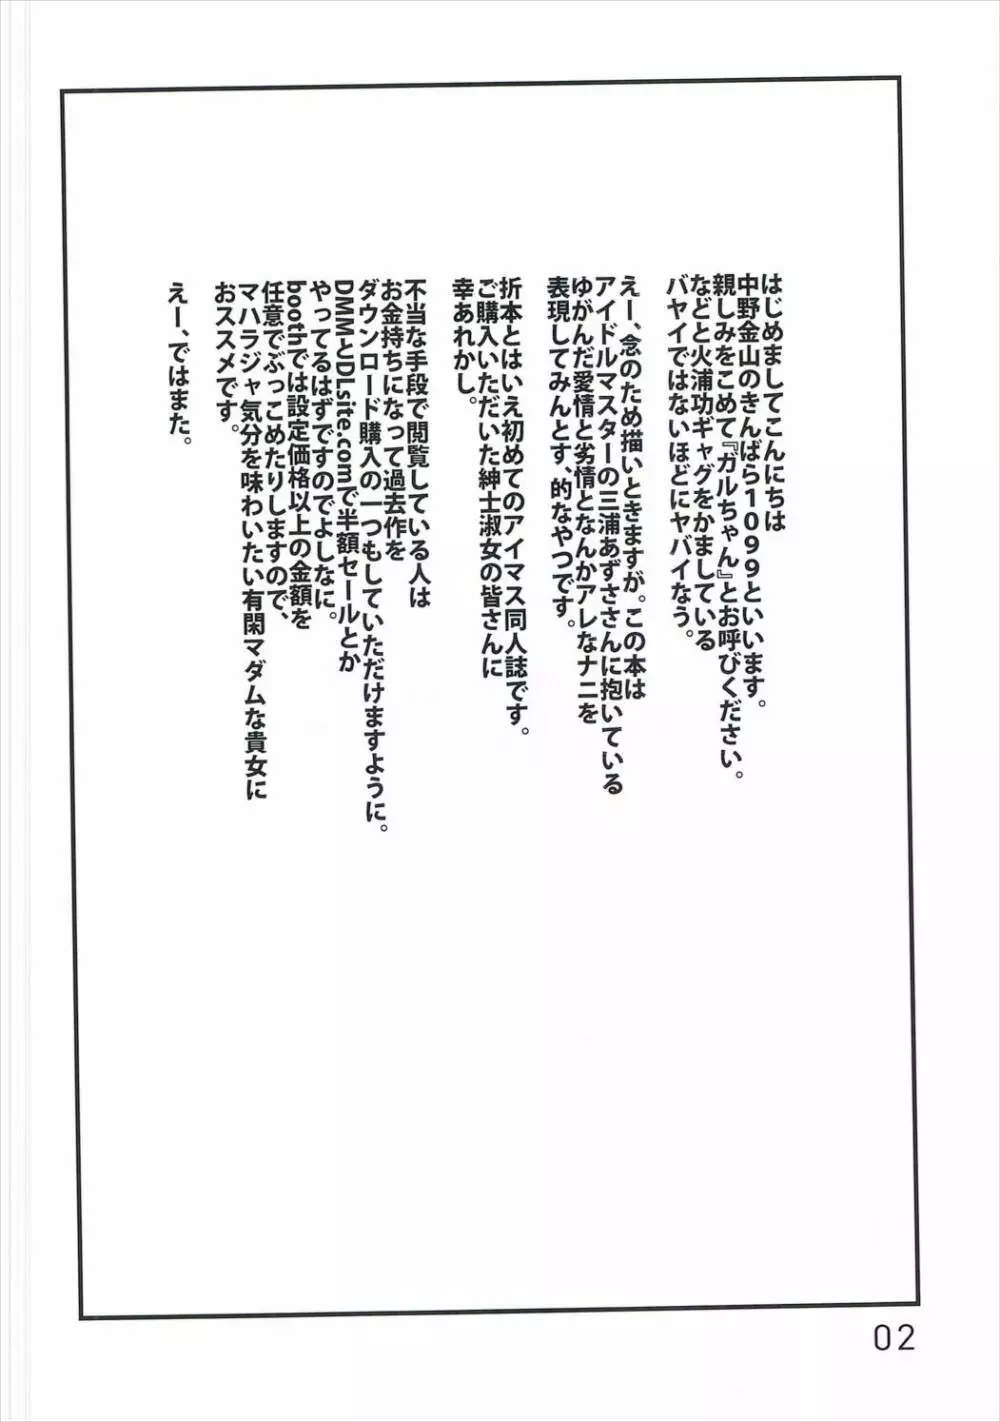 はじめましてこんにちは
中野金山のきんばら1099といいます。
親しみをこめて『ガルちゃん』とお呼びください。
などと火浦功ギャグをかましている
バヤイではないほどにヤバイなう。
えー、念のため描いときますが。この本は
アイドルマスターの三浦あずささんに抱いている
ゆがんだ愛情と劣情となんかアレなナニを
表現してみんとす、的なやつです。
折本とはいえ初めてのアイマス同人誌です。
ご購入いただいた紳士淑女の皆さんに
幸あれかし。
不当な手段で閲覧している人は
お金持ちになって過去作を
ダウンロード購入の一つもしていただけますように。
DMMとJDLsite.comで半額セールとか
やってるはずですのでよしなに。
boothでは設定価格以上の金額を
任意でぶっこめたりしますので、
マハラジャ気分を味わいたい有閑マダムな貴女に
おススメです。
えー、ではまた。
02